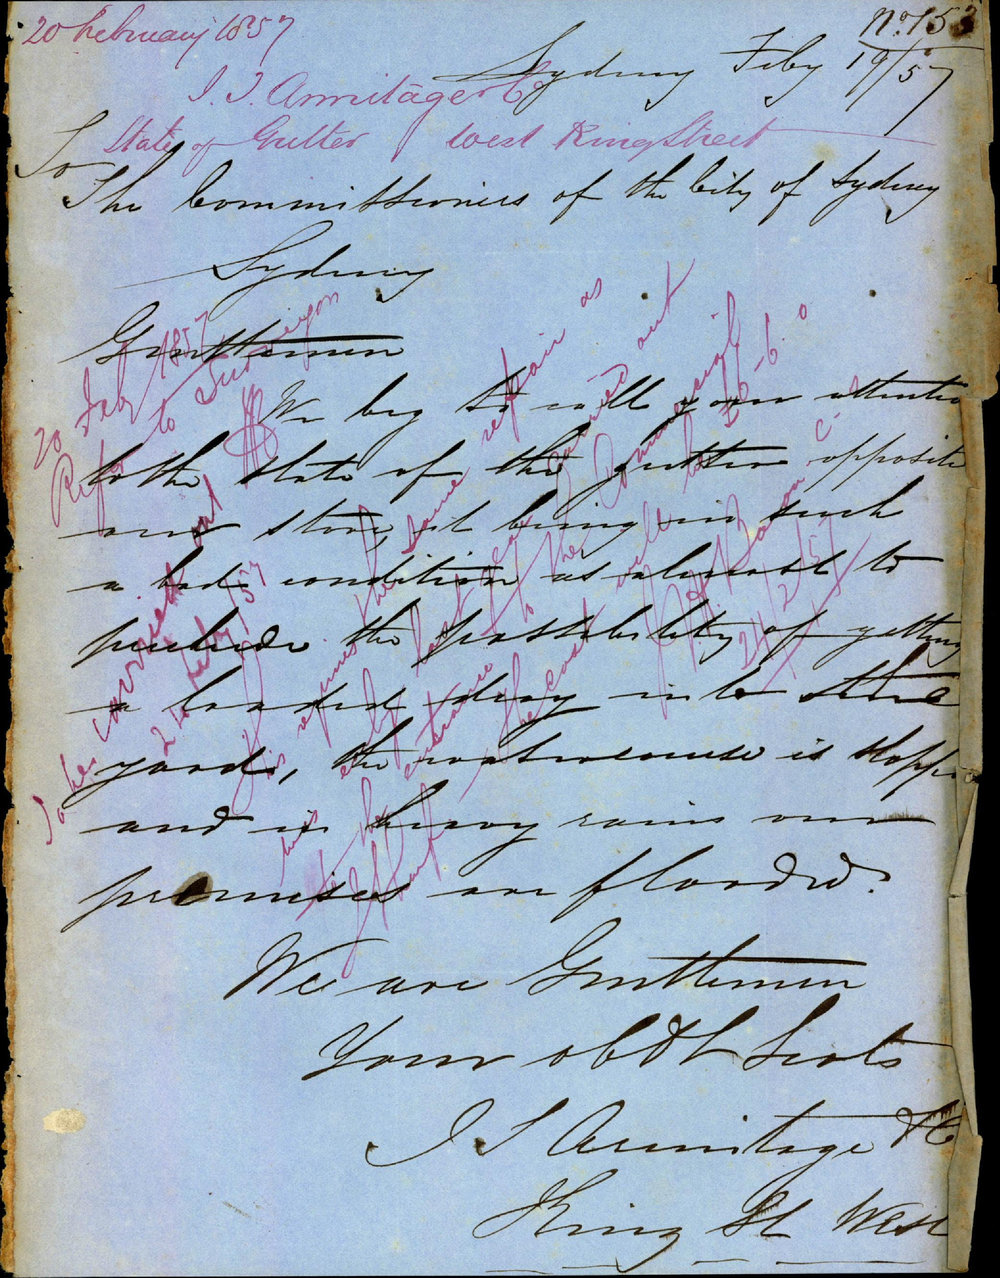 20 February 1857
No. 153
Sydney Feby 19/57
J. S. Armitage & Co
State of Gutter West King Street
To
The Commissioners of the City of Sydney
Sydney
Gentlemen
We beg to call your attention
to the state of the gutter opposite
our store, it being in such
a bad condition as almost to
preclude the possibility of getting
a loaded dray into the
yard, the watercourse is stopp
and in heavy rains our
premises are flooded.
We are Gentlemen
Your obdt Servts
J S Armitage & Co
King St West
20 Feby 1857
Refer to City Surveyor
To be carried out
21 Feby /57
the same repair as
carried out
by
to the Commercial
the entrance
the cost will be £6-6.0
24/2/57